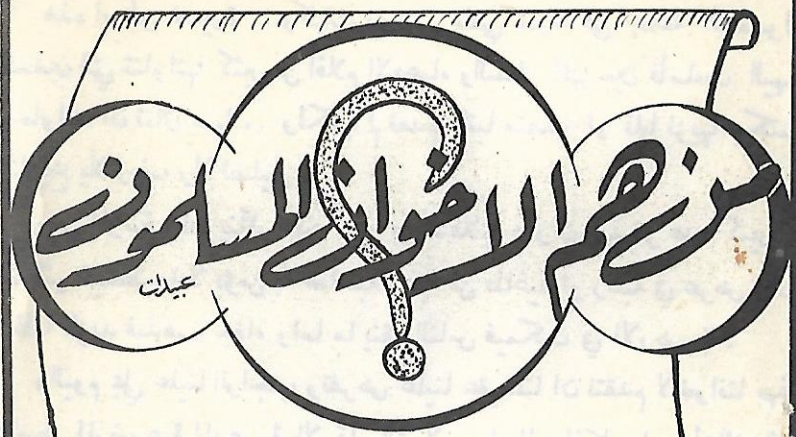 من هم الاخوان المسلمون ؟
عبيدات